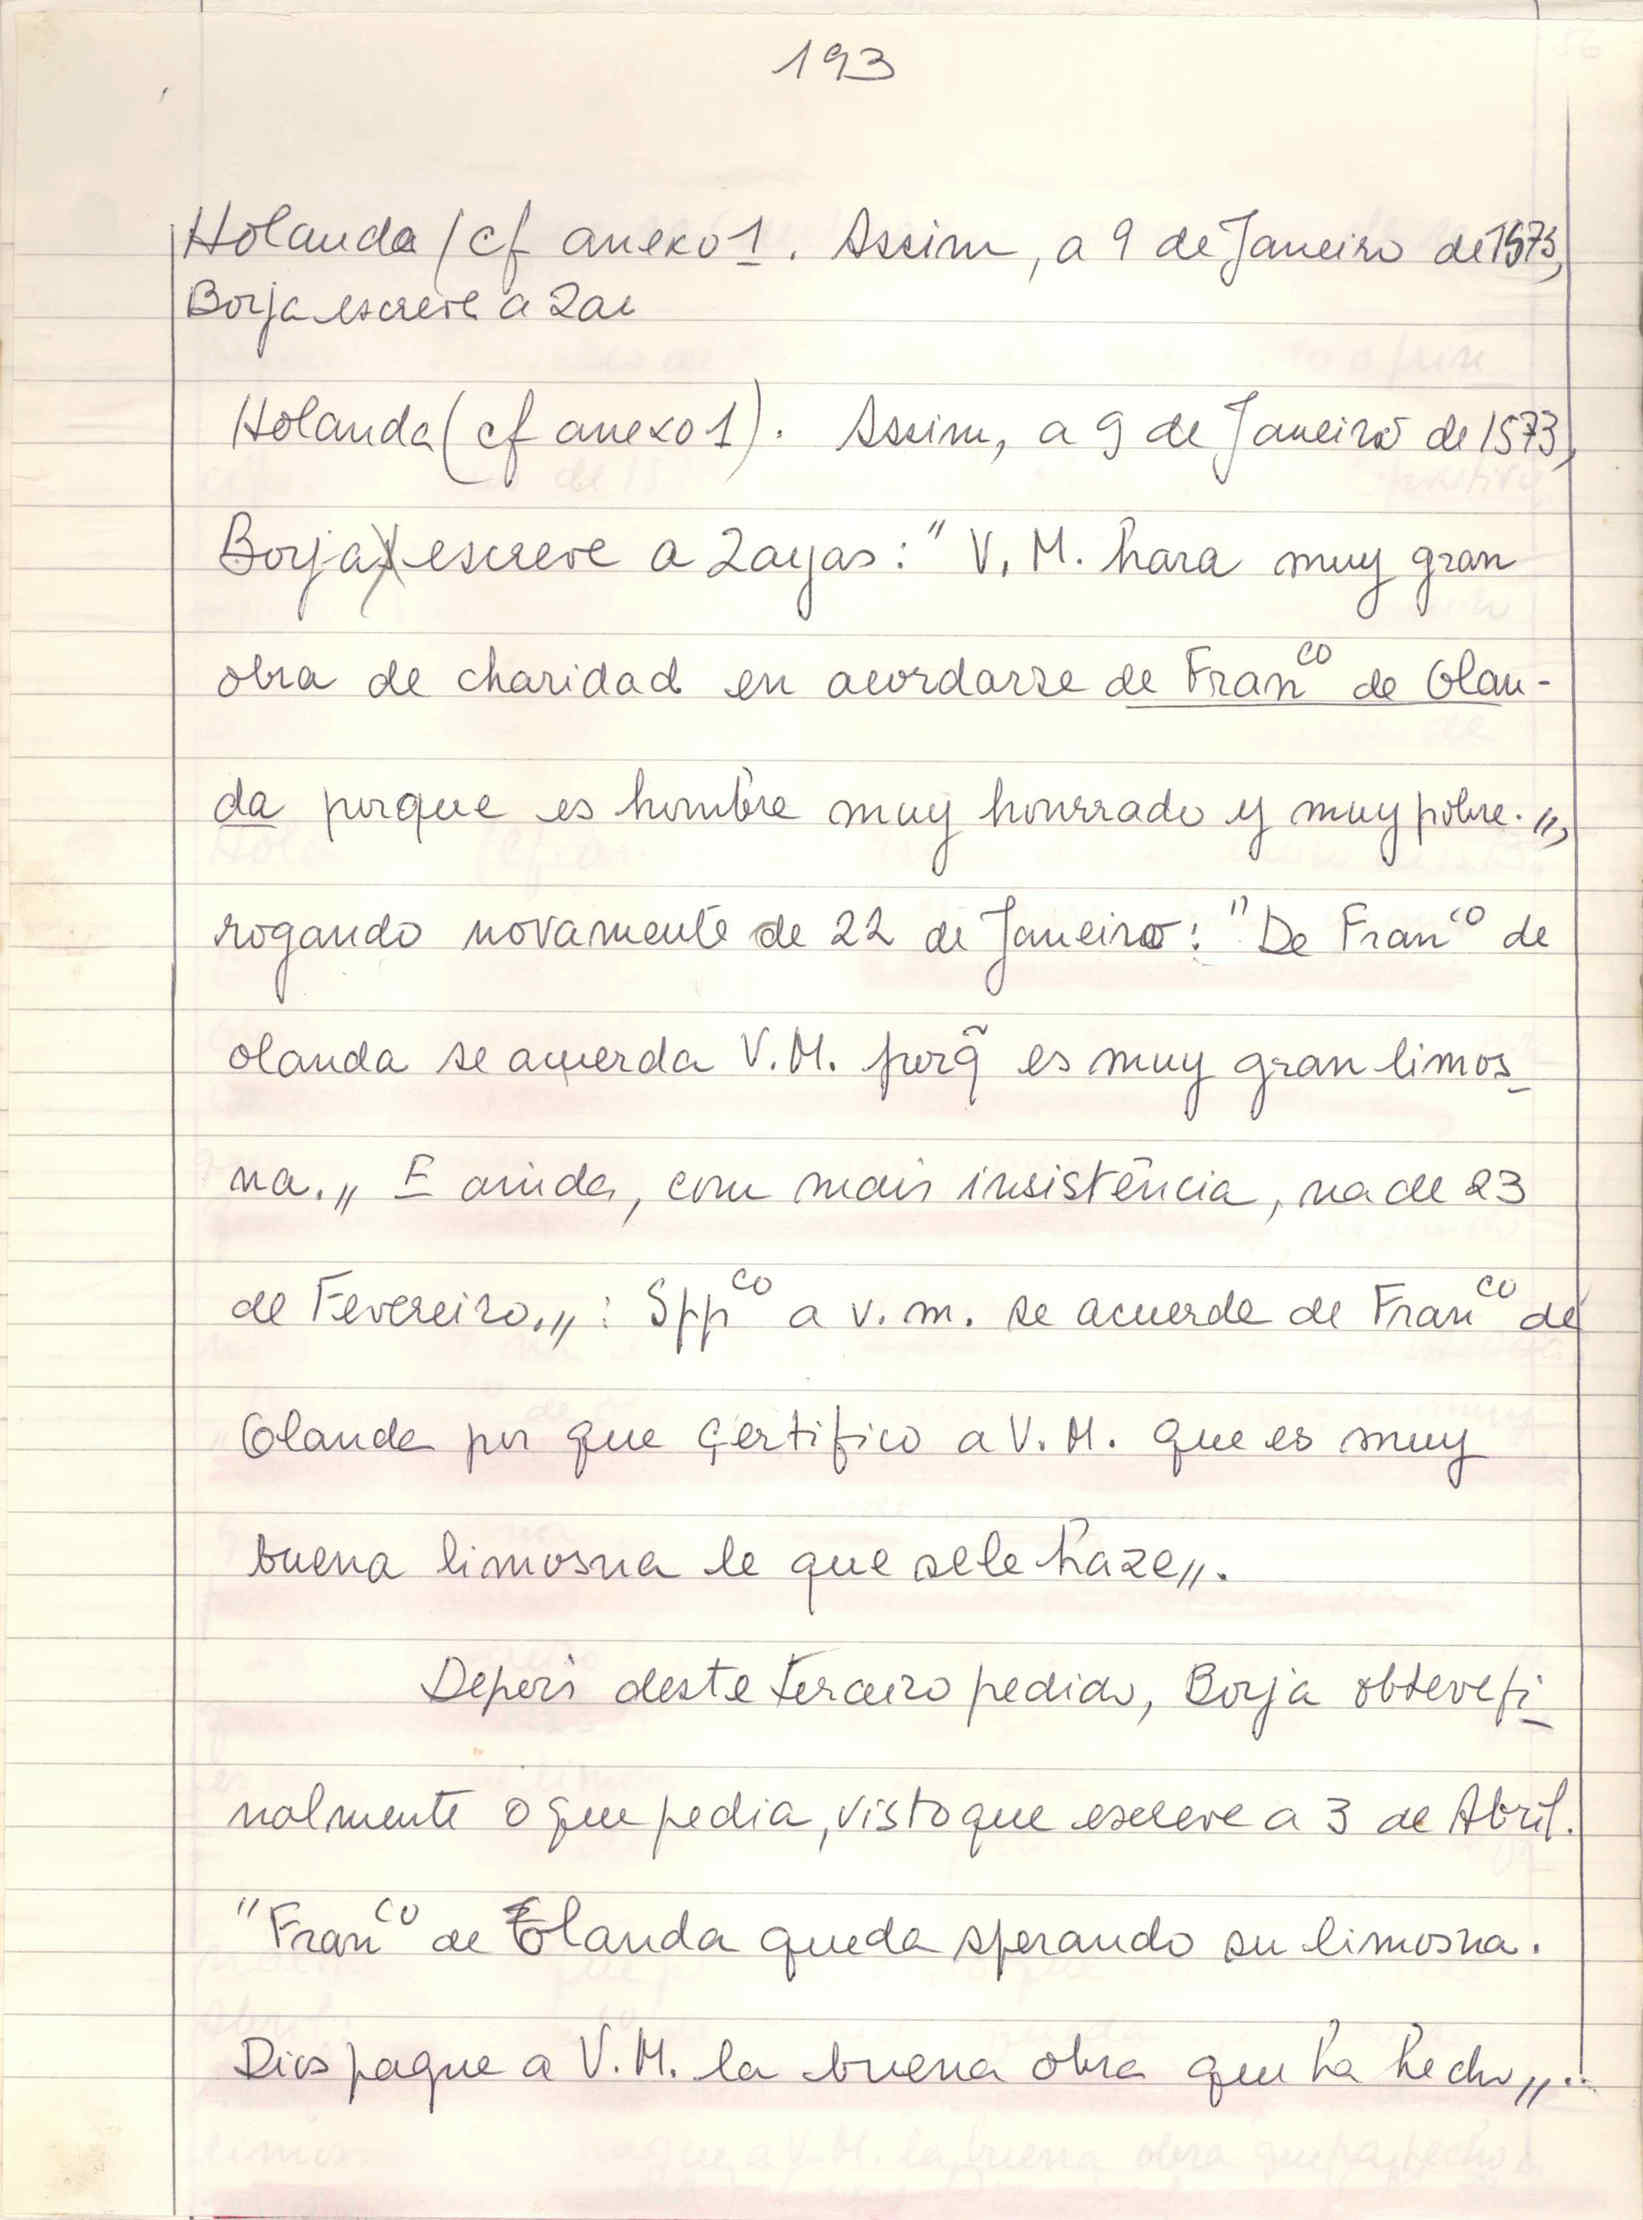 193
Holanda (cf anexo 1. Assim, a 9 de Janeiro de 1573,
Borja escreve a Zai
Holanda (cf anexo 1). Assim, a 9 de Janeiro de 1573,
Borja escreve a Zayas: "V. M. hara muy gran
obra de charidad en acordarse de Franco de Olan-
da porque es hombre muy honrrado y muy pobre.",
rogando novamente de 22 de Janeiro: "De Franco de
olanda se acuerda V.M. porq̃ es muy gran limos
na." E ainda, com mais insistência, na de 23
de Fevereiro.": Sppco a v. m. se acuerde de Franco de
Olanda por que çertifico a V. M. que es muy
buena limosna le que se le haze".
Depois deste terceiro pedido, Borja obteve fi
nalmente o que pedia, visto que escreve a 3 de Abril.
"Franco de Olanda queda sperando su limosna.
Dios pague a V. M. la buena obra que ha hecho"..